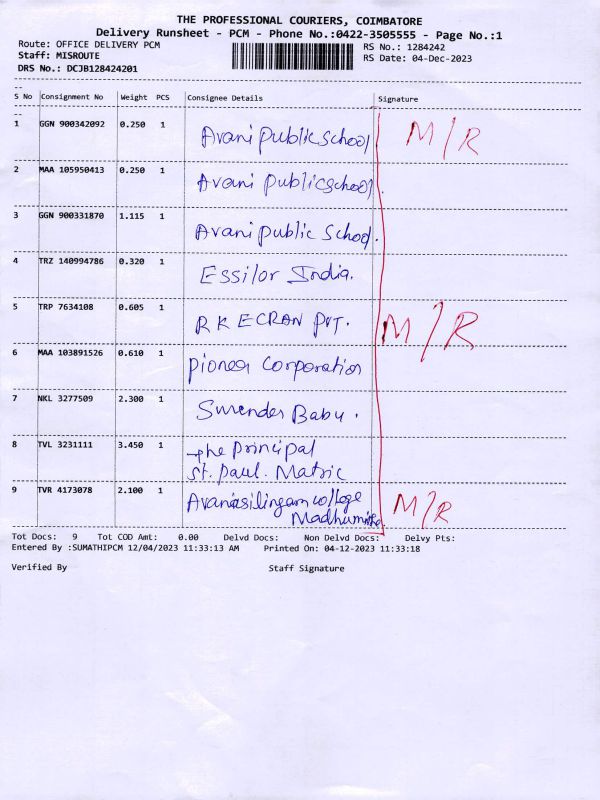 THE PROFESSIONAL COURIERS, COIMBATORE
Delivery Runsheet - PCM - Phone No.:0422-3505555 - Page No.:1
Route: OFFICE DELIVERY PCM
RS No.: 1284242
Staff: MISROUTE
RS Date: 04-Dec-2023
DRS No.: DCJB128424201
S No Consignment No Weight PCS Consignee Details Signature
1 GGN 900342092 0.250 1 Avani Public school M/R
2 MAA 105950413 0.250 1 Avani Public school
3 GGN 900331870 1.115 1 Avani Public School.
4 TRZ 140994786 0.320 1 Essilor India.
5 TRP 7634108 0.605 1 R K ECRAN PVT. M/R
6 MAA 103891526 0.610 1 Pioneer Corporation
7 NKL 3277509 2.300 1 Surender Babu.
8 TVL 3231111 3.450 1 The Principal
St. Paul. Matric
9 TVR 4173078 2.100 1 Avanasilingam college M/R
Tot Docs: 9 Tot COD Amt: 0.00 Delvd Docs: Non Delvd Docs: Delvy Pts:
Entered By :SUMATHIPCM 12/04/2023 11:33:13 AM Printed On: 04-12-2023 11:33:18
Verified By Staff Signature